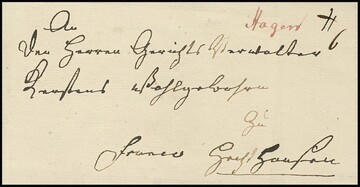 Hagen
An
den Herren Gerichts Verwalter
Kerstens Wohlgebohrn
Zu
franco Hechthausen